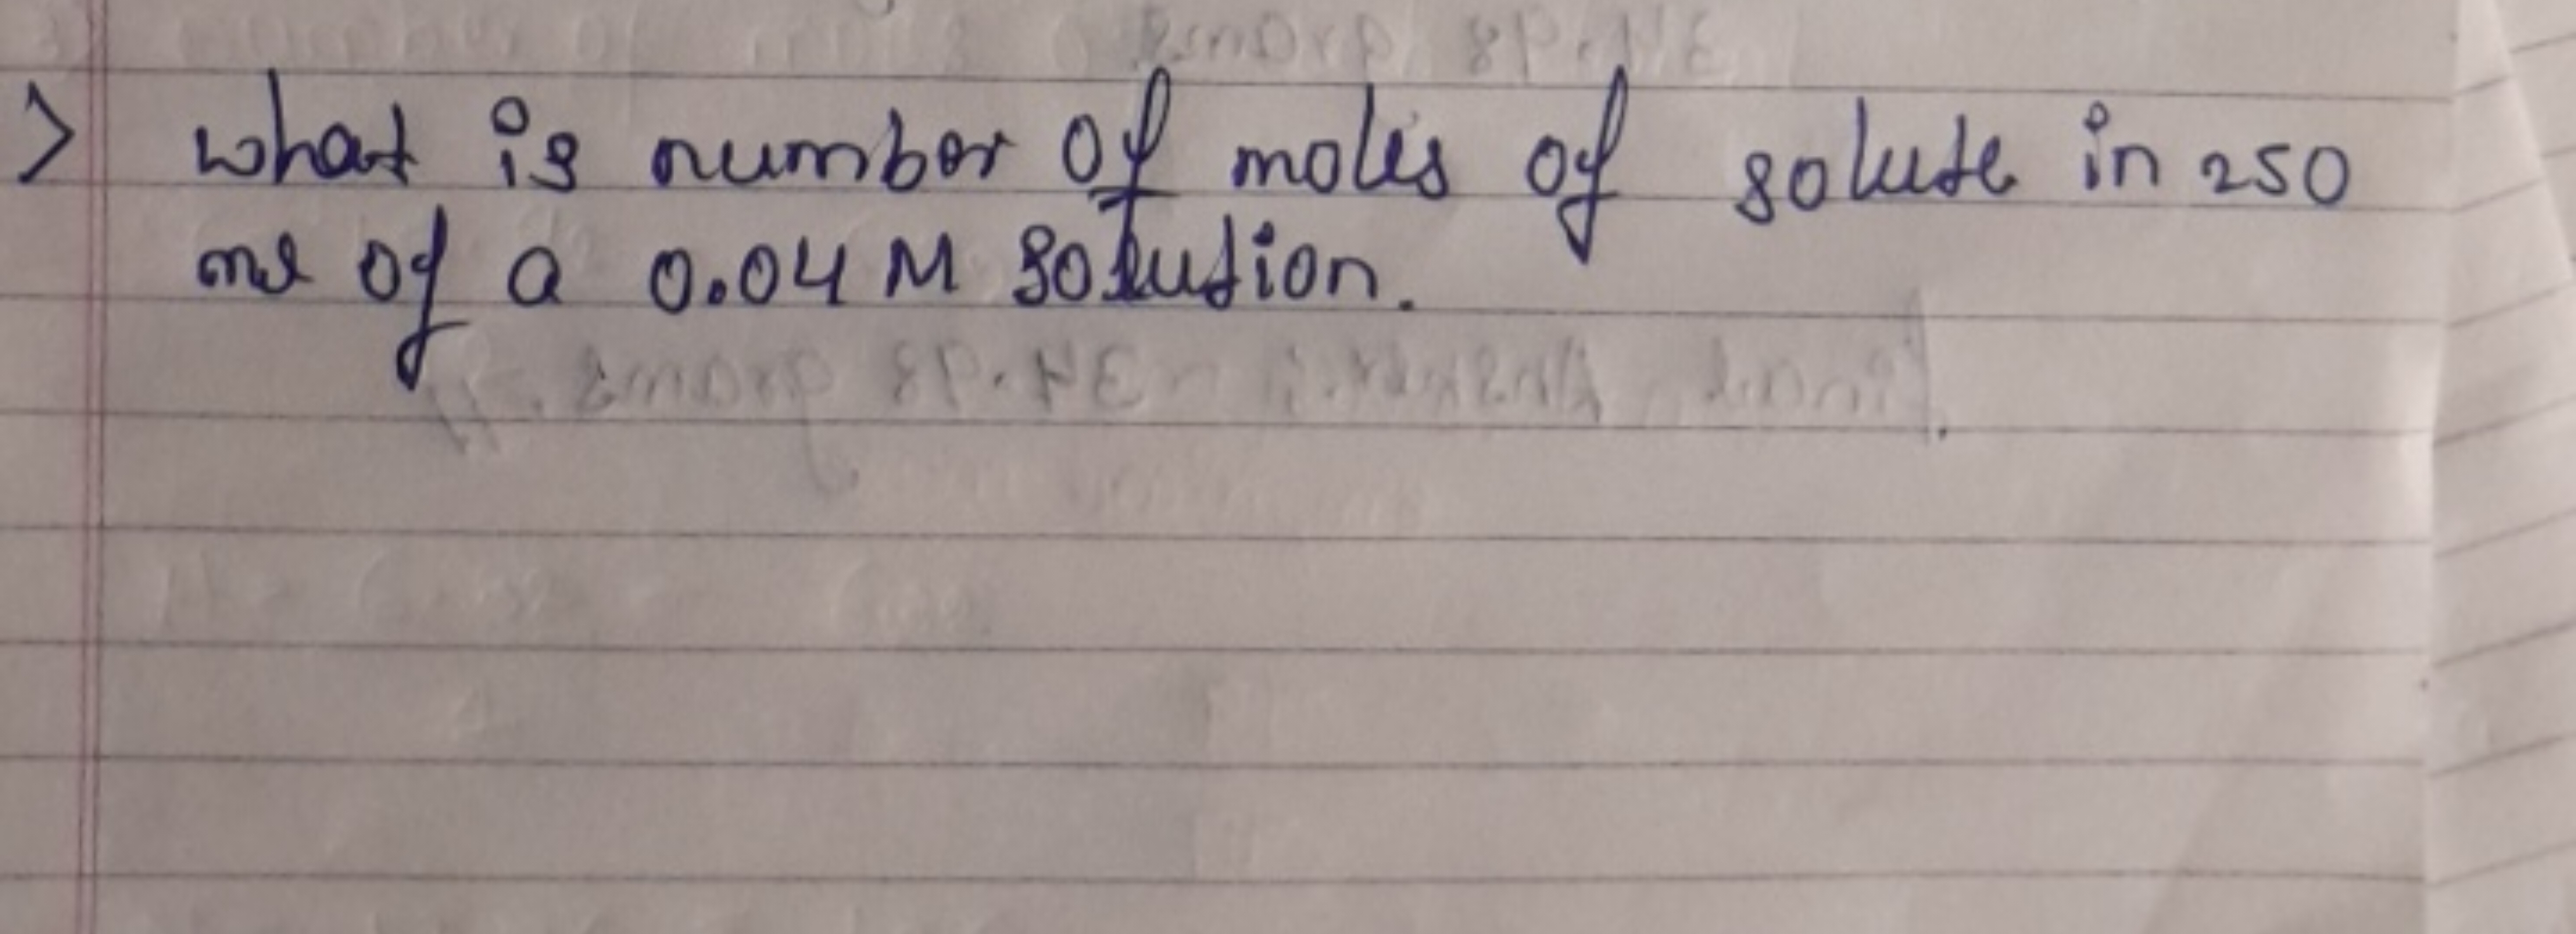 > what is number of moles of solute in 250
ml of a 0.04 M solution.